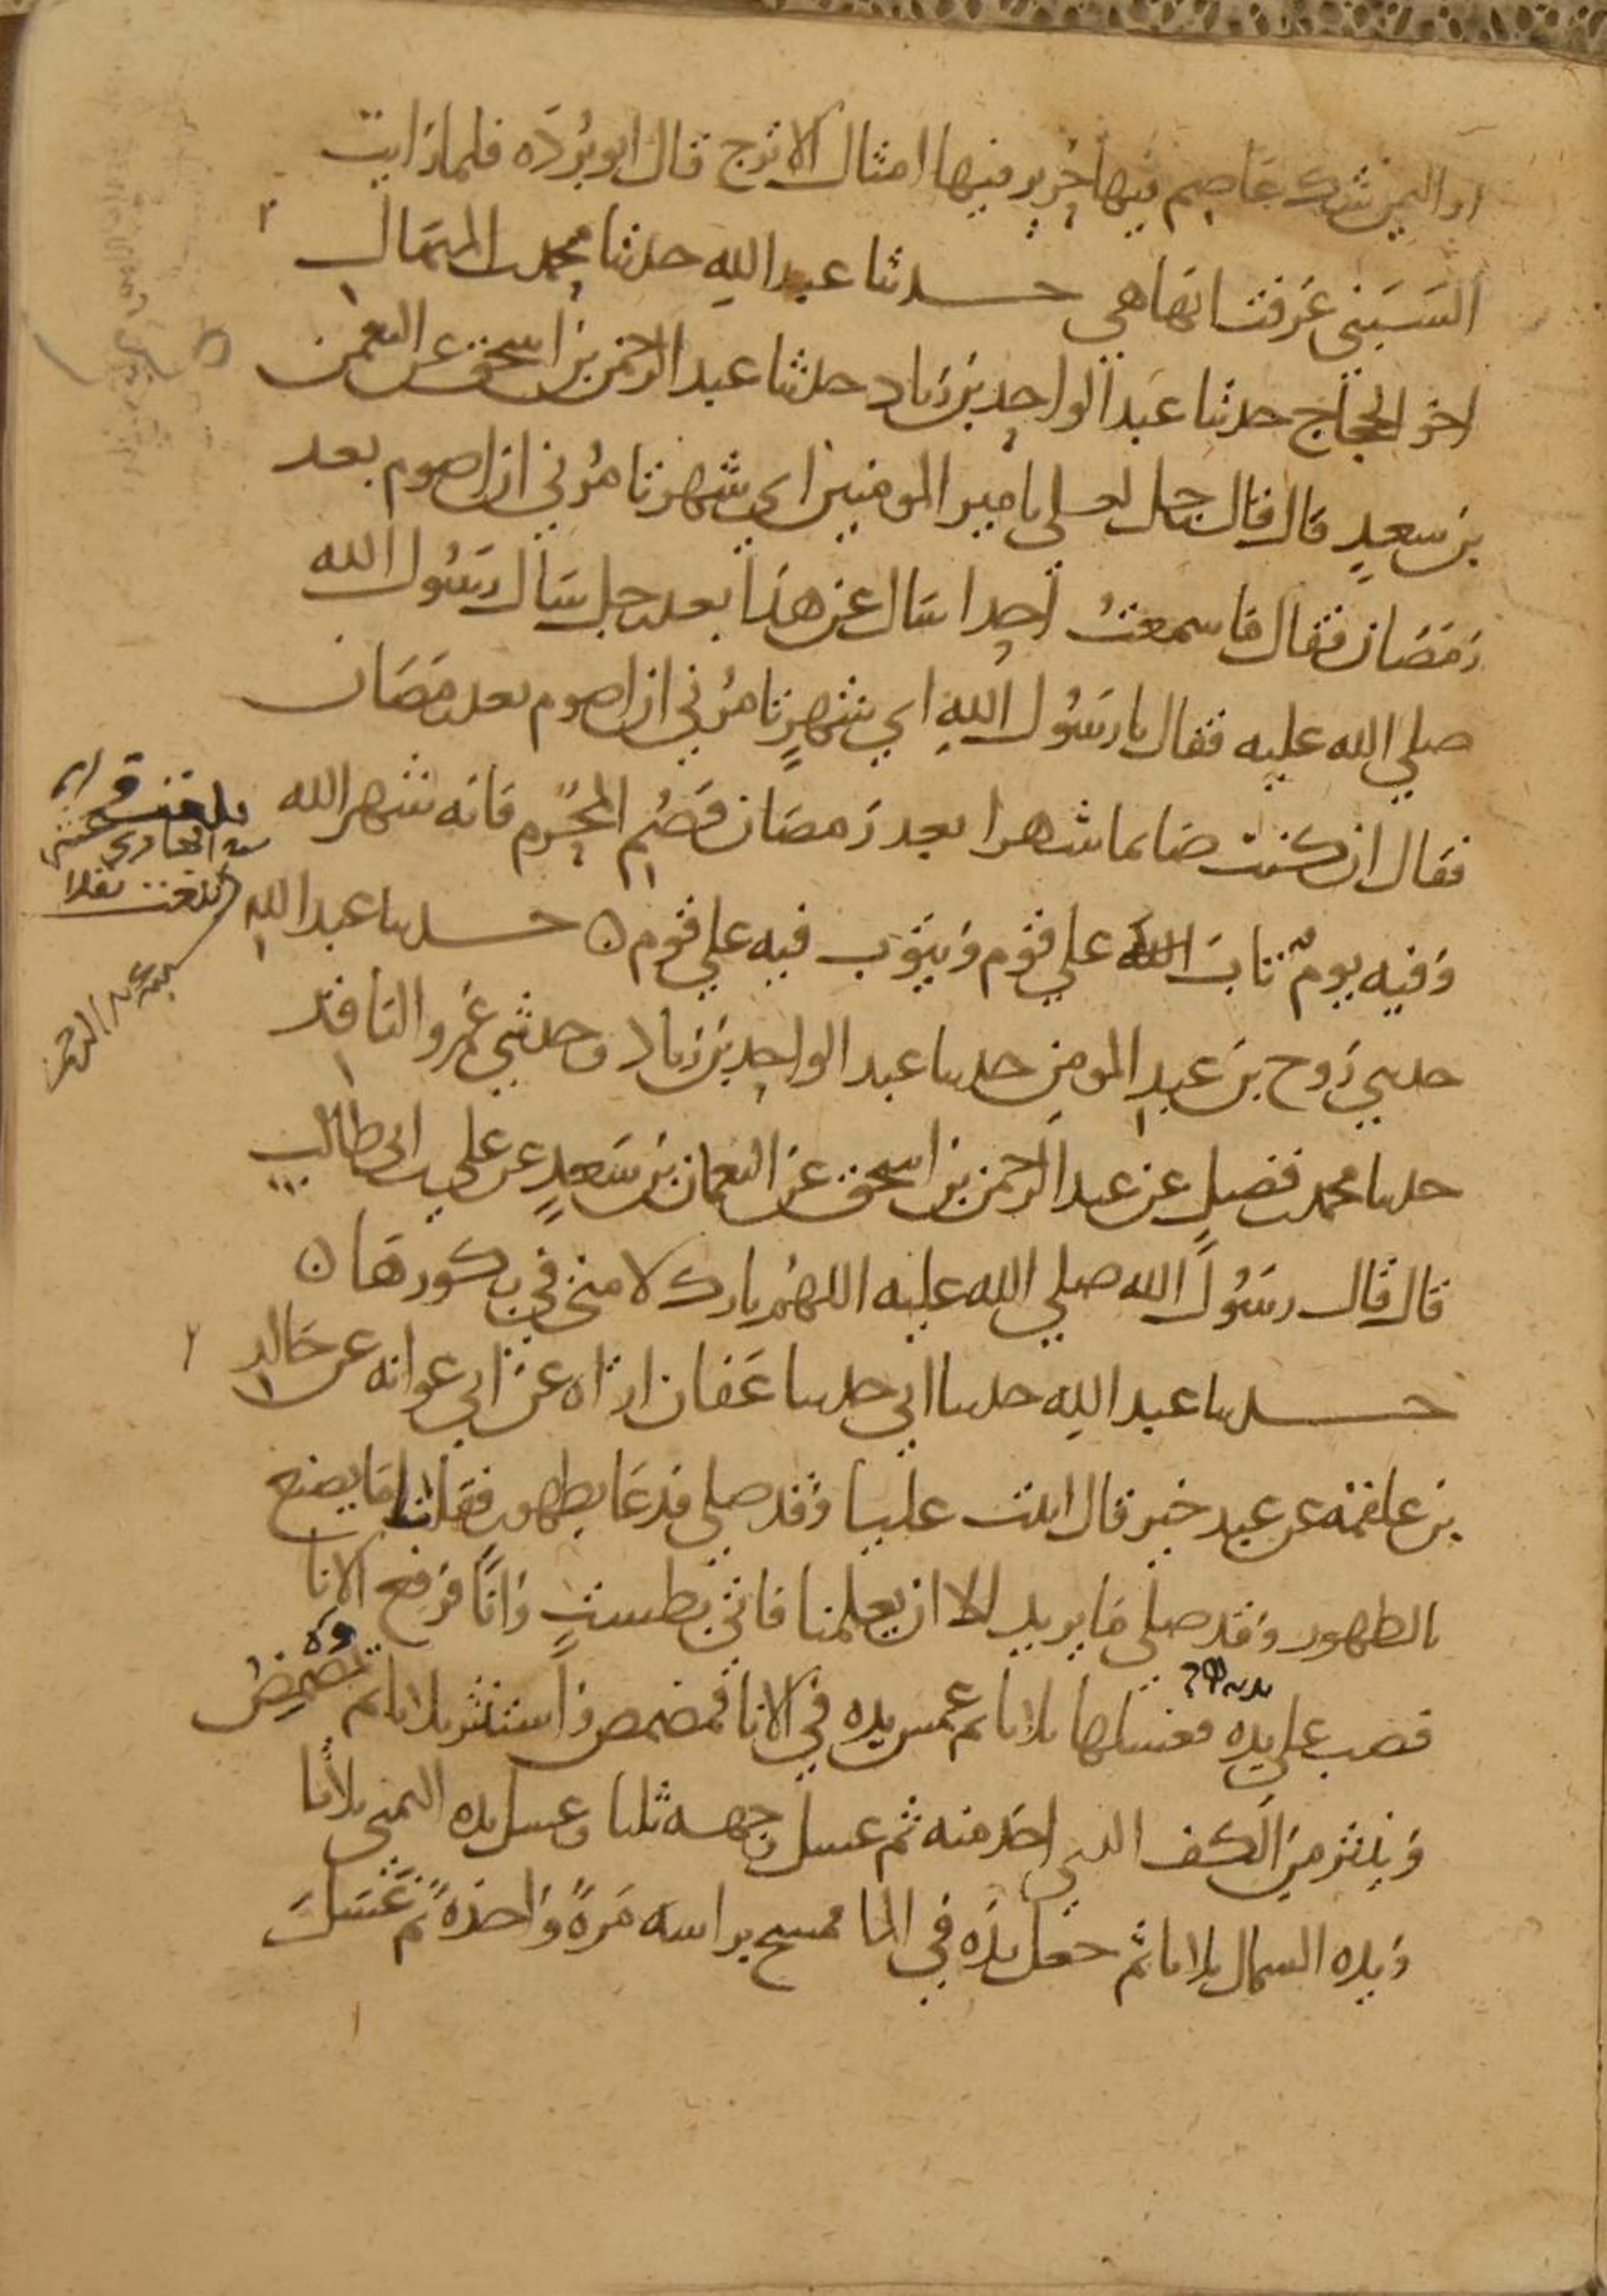 او اليمن شك عاصم فيها حرير فيها امثال الاترج قال ابو بُردَه فلما رايت
السَبَني عَرفت انها هي حدثنا عبد اللهِ حدثنا محمد بن المنهال
اخو الحجاج حدثنا عبد الواحد بن زياد حدثنا عبد الرحمن بن اسحق عن النعمن
بن سعدٍ قال قال رجل لعلي يا امير المومنين اي شهر تامُرني ان اصوم بعد
رَمَضان فقال ما سمعتُ احدا سال عن هذا بعد رجل سَال رسُول الله
صلي الله عليه فقال يا رسُول اللهِ اي شهرٍ تامُرني ان اصوم بعد رمَضَان
فقال ان كنت صَائما شهرا بعد رَمضَان فصُم المحرّم فانه شهر الله
وَفيه يومٌ تابَ الله علي قوم وَيتوب فيه علي قوم ٥ حدثنا عبد اللهِ
حدثني رَوح بن عبدِ المومنِ حدثنا عبد الواحد بن زياد وحدثني عَمرو الناقد
حدثنا محمد بن فضيلٍ عن عبد الرحمن بن اسحق عن النعمان بن سَعدٍ عن علي بن ابي طالبٍ
قال قال رسُولُ الله صلي الله عليه اللهُم بارك لامتي في بكورهَا ٥
حدثنا عبد اللهِ حدثنا ابي حدثنا عَفان اراه عن ابي عوانه عن خالد
بن علقمه عن عبد خير قال اتيت عليا وَقد صلي فدعَا بطهورٍ فقلنا ما يصنع
بالطهور وَقد صلي مَا يريد الا ان يعلمنا فاتي بطستٍ وَاناً فرفع الانا
فصب علي يده فغسلها ثلاثا ثم غمس يده في الانا فمضمض وَاستنثر ثلاثا ثم تمضمض
وَينثر من الكف الذي اخذ منه ثم غسل وجهه ثلثا وغسل يده اليمني ثلاثا
وَيده الشمال ثلاثا ثم جعل يدَه في الما فمسح براسه مَرةً وَاحدَةً ثم غَسَل